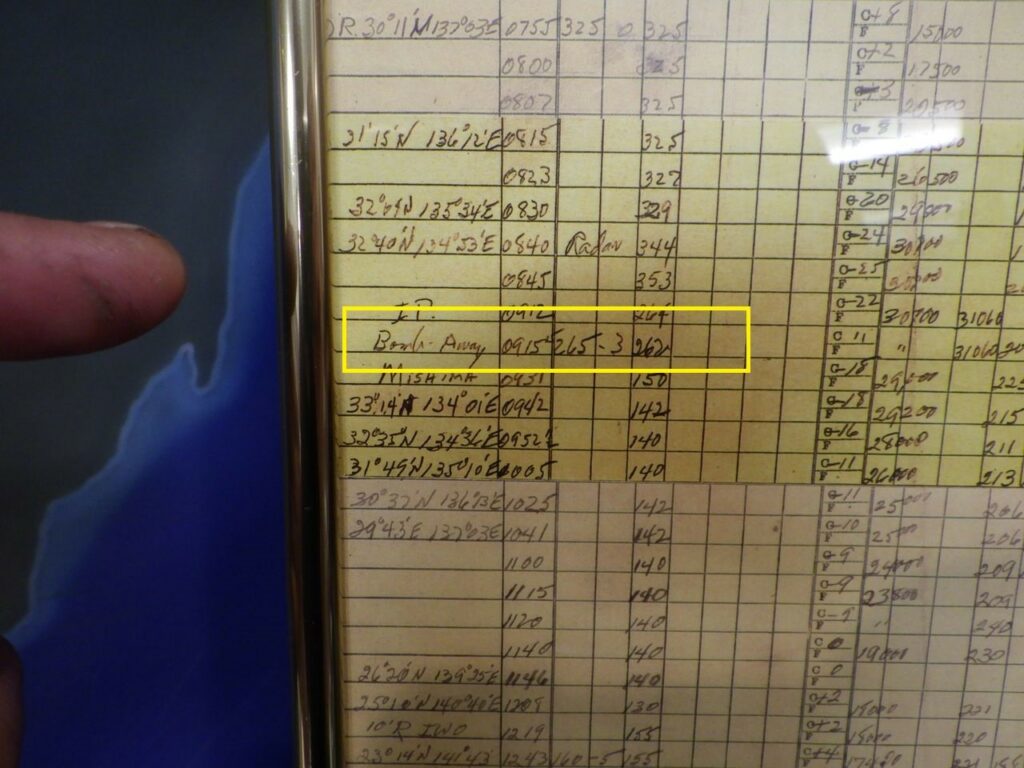 D.R. 30°11'N 137°03'E 0755 325 0 325 C+8 15000
0800 325 C+2 17500
0807 325 20500
21°15'N 136°12'E 0815 325
0823 327 C-14 26500
32°09'N 135°34'E 0830 329 C-20 29000
32°40'N 134°53'E 0840 Radar 344 C-24 30700
0845 353 C-25
I.P. 0912 264 C-22 30700 31060
Bomb-Away 0915 265 -3 262 C 11 " 31060
MISHIMA 0931 150 C-18
33°14'N 134°01'E 0942 142 C-18 29200 215
32°35'N 134°36'E 0952 140 C-16 28000 211
31°49'N 135°10'E 1005 140 C-11 26000 213
30°37'N 136°13'E 1025 142 C-11 25000 206
29°43'E 137°03'E 1041 142 C-10 2500 206
1100 140 C-9 24000 209
1115 140 C-9 23800 209
1120 140 C-9 " 240
1140 140 C 0 19000 230
26°20'N 139°25'E 1146 140 C 0
25°10'N 140°40'E 1209 130 C+2 15000 221
10'R IWO 1219 155 C+2 15000 220
23°14'N 141°43' 1243 160 -5 155 C+4